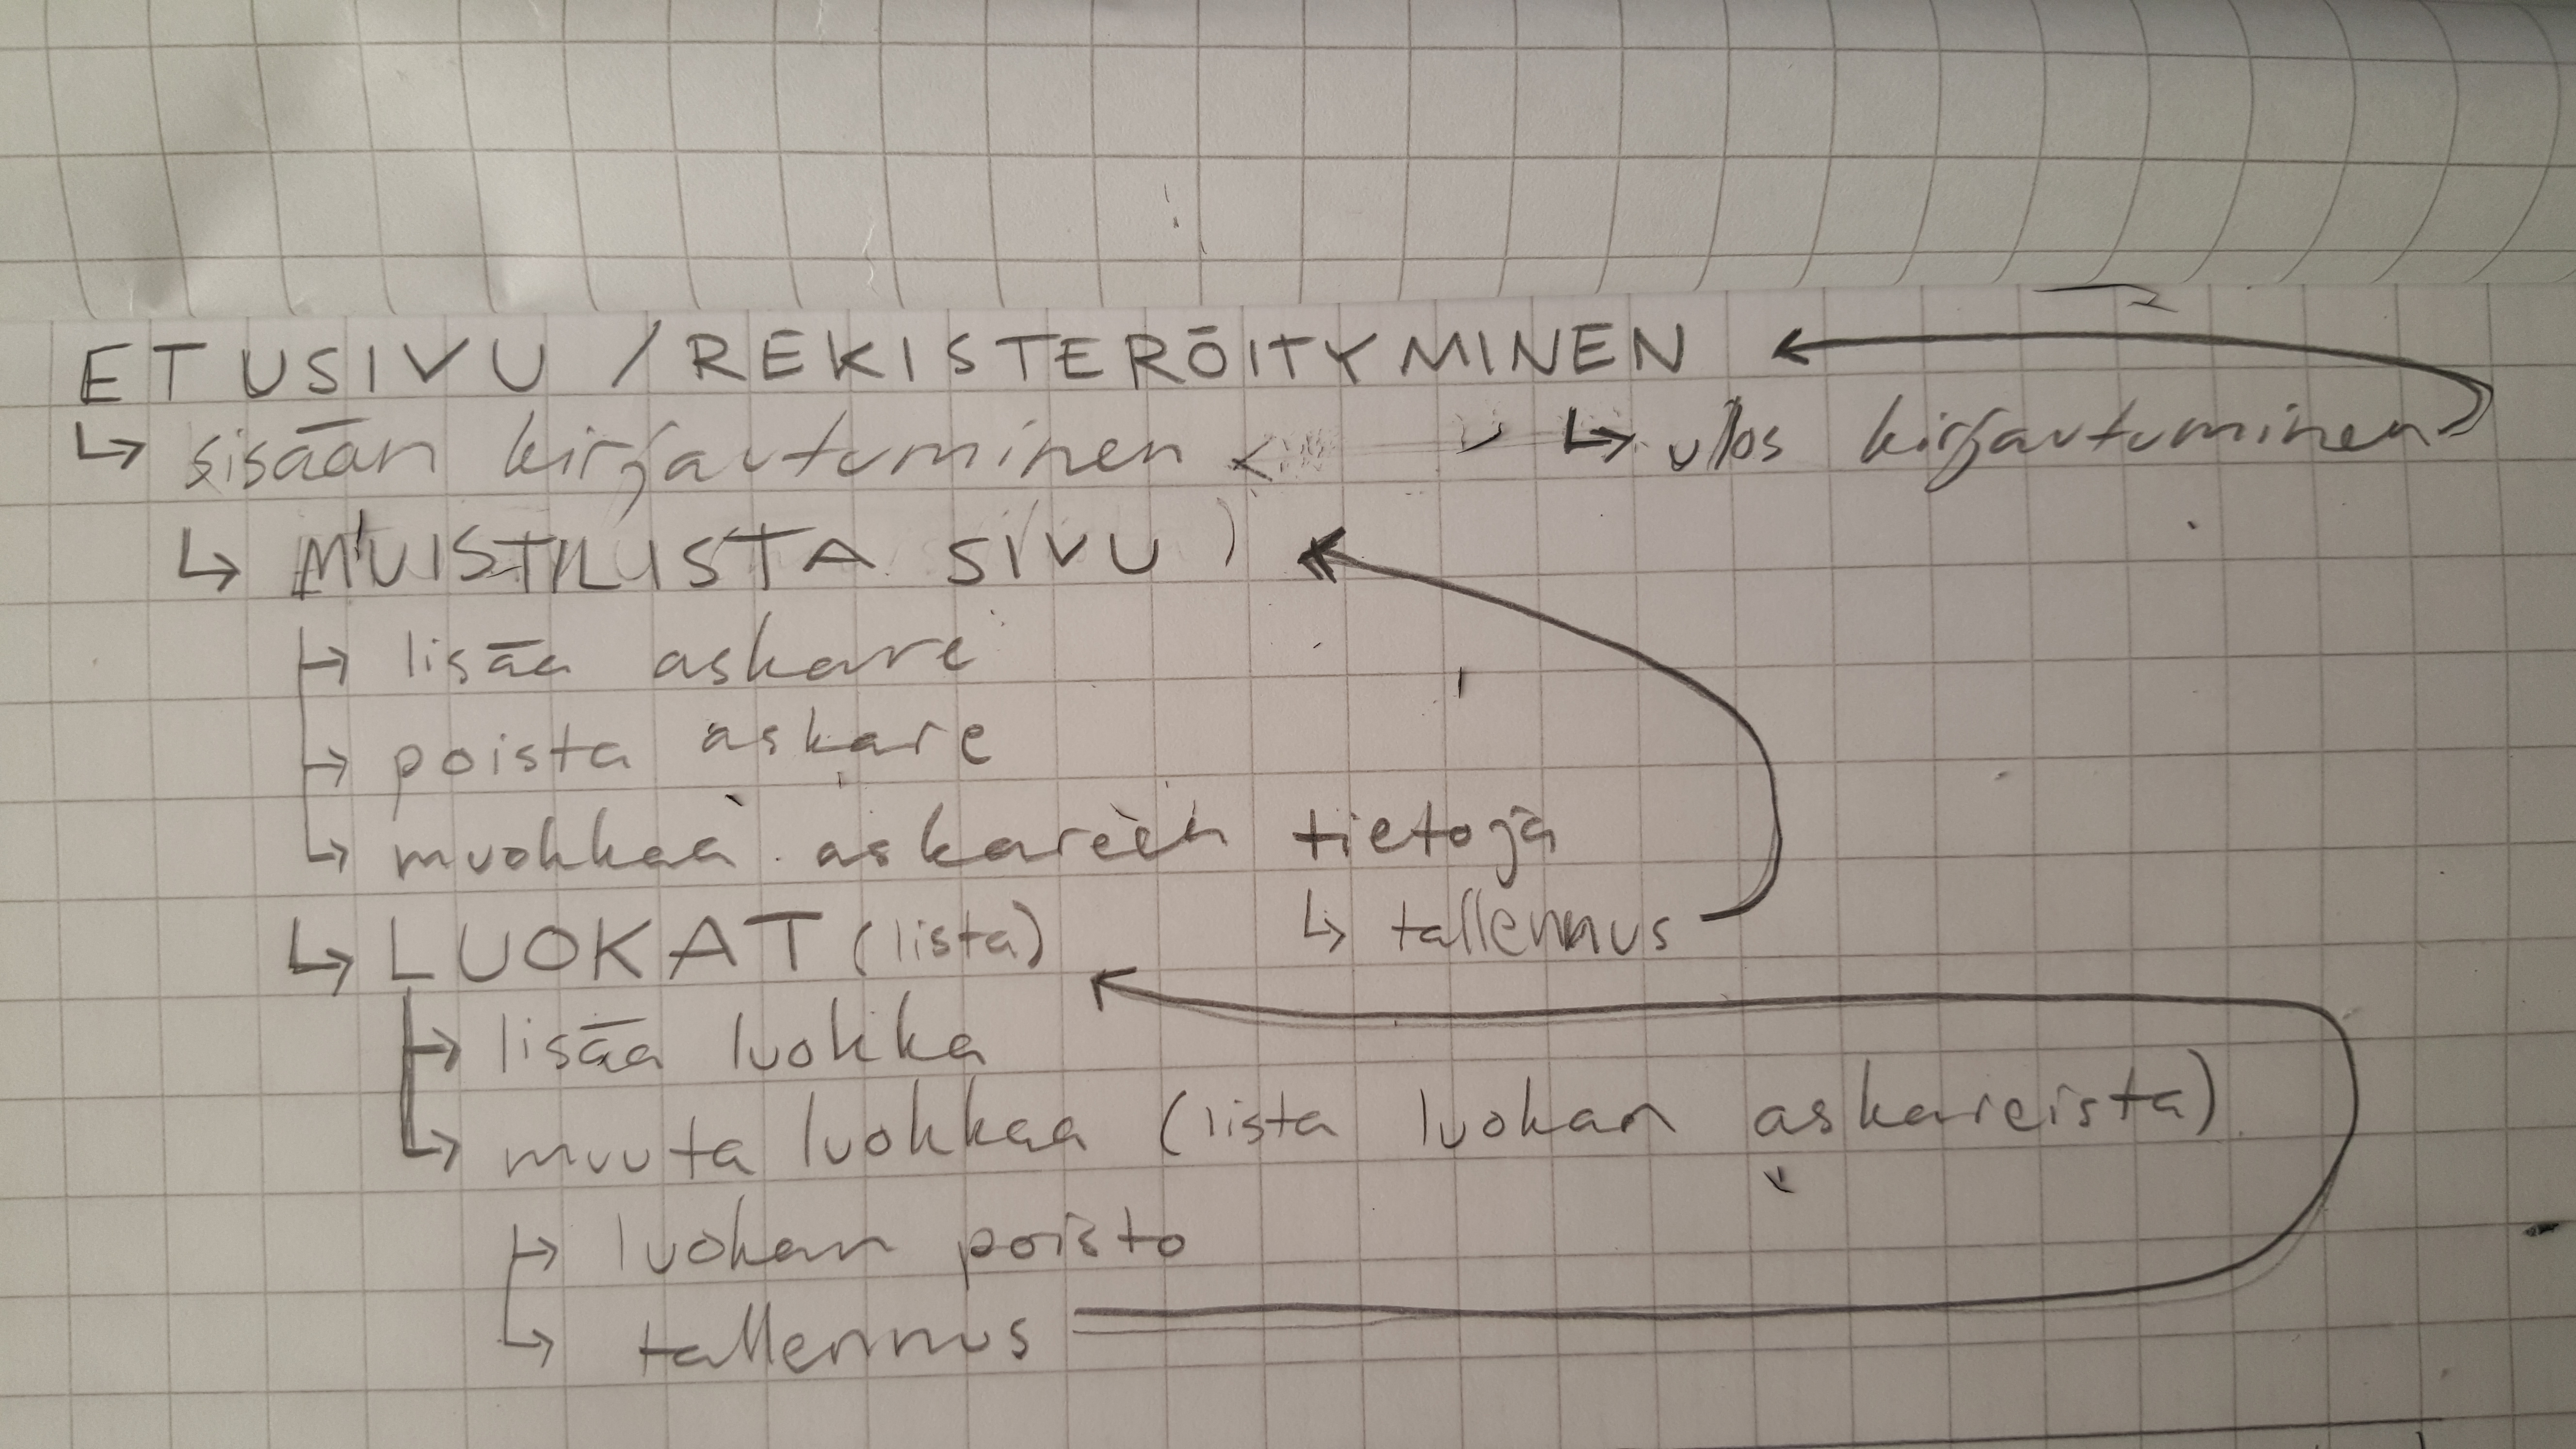 ETUSIVU / REKISTERÖITYMINEN
↳ sisään kirjautuminen < ↳ ulos kirjautuminen
↳ MUISTILISTA SIVU )
→ lisää askare
→ poista askare
↳ muokkaa askareen tietoja
↳ tallennus
↳ LUOKAT (lista)
→ lisää luokka
↳ muuta luokkaa (lista luokan askareista)
→ luokan poisto
↳ tallennus